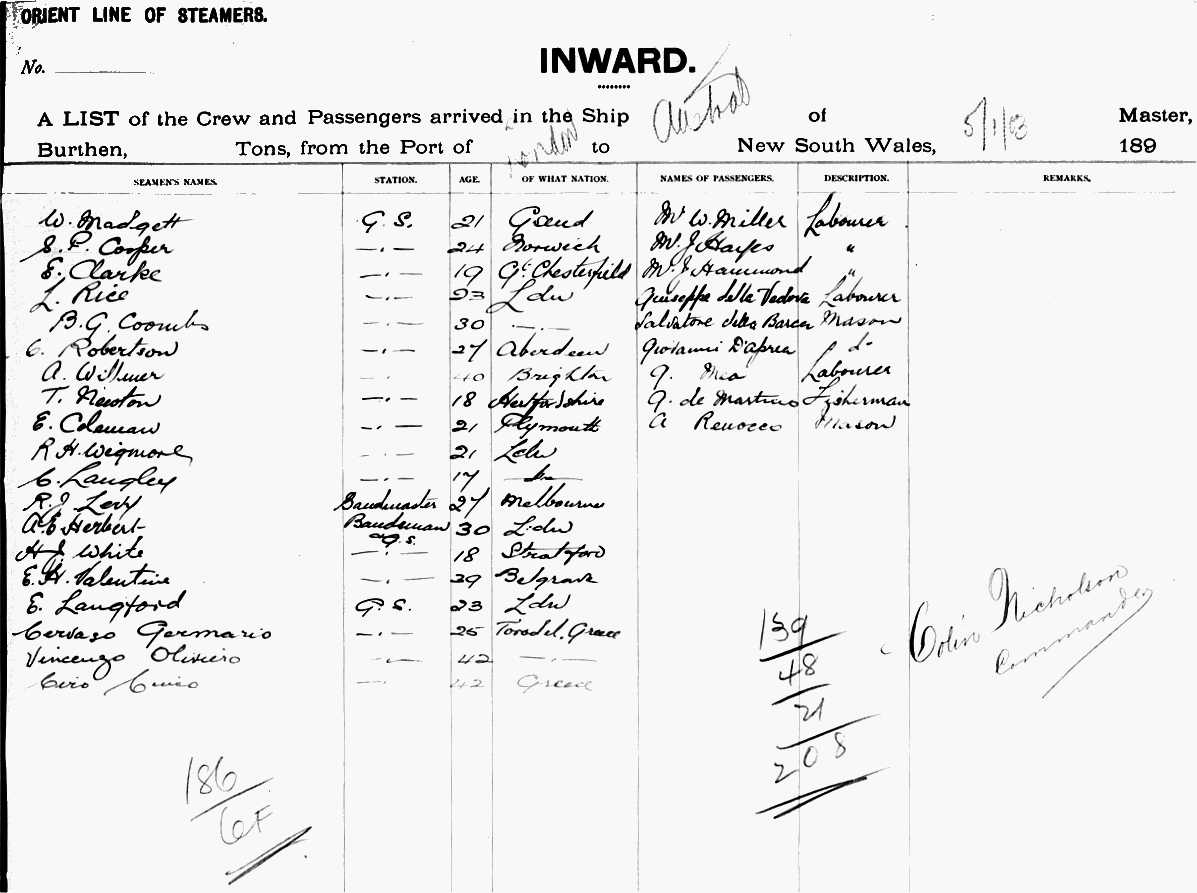 ORIENT LINE OF STEAMERS.
No.
INWARD.
A LIST of the Crew and Passengers arrived in the Ship Austral of 5/1/03 Master,
Burthen, Tons, from the Port of London to New South Wales, 189
SEAMEN'S NAMES. STATION. AGE. OF WHAT NATION. NAMES OF PASSENGERS. DESCRIPTION. REMARKS.
W. Madgett G.S. 21 Mr W. Miller Labourer
S. P. Cooper —.— 24 Norwich Mr J Hayes "
E. Clarke —.— 19 Gt. Chesterfield Mr J Hammond "
L. Rice —.— 23 Ldn Giuseppe della Vedova Labourer
B. G. Coombs —.— 30 —.— Salvatore della Barca Mason
C. Robertson —.— 27 Aberdeen Giovanni D'aprea do
A. Willmer —.— 40 Brighton G. Labourer
T. Newton —.— 18 Hertfordshire G. de Martino Fisherman
E. Coleman —.— 21 Plymouth A Renocco Mason
R. H. Wigmore —.— 21 Ldn
C. Langley —.— 17
R. J. Levy Bandmaster 27 Melbourne
A. E Herbert Bandsman & G.S. 30 Ldn
H. J. White —.— 18 Stratford
E. H. Valentine —.— 29 Belgrave
E. Langford G.S. 23 Ldn
Gervaso Germario —.— 25 Greece
Vincenzo Oliviero —.— 42 —.—
Ciro —.— 42 Greece
139
48
21
208
Colin Nicholson
Commander
186
6F